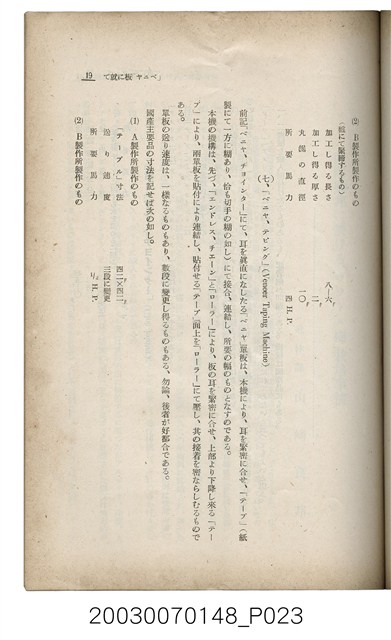 (2) B製作所製作のもの
(紙にて緊縛するもの)
加工し得る長さ 八—六
加工し得る厚さ 二"
丸鋸の直徑 一〇"
所要馬力 四 H. P.
(七)、「ベニヤ、テピング」(Veneer Taping Machine)
前記「ベニヤ、チョインター」にて、耳を眞直になしたる「ベニヤ」單板は、本機により、耳を緊密に合せ、「テープ」(紙
製にて一方に糊あり、恰も切手の糊の如し)にて接合、連結し、所要の幅のものとなすのである。
本機の機構は、先づ、「エンドレス、チエーン」と「ローラー」により、板の耳を緊密に合せ、上部より下降し來る「テー
プ」により、兩單板を貼付により連結し、貼付せる「テープ」面上を「ローラー」にて壓し、其の接着を密ならしむるもので
ある。
單板の送り速度は、一樣なるものもあり、數段に變更し得るものもある、勿論、後者が好都合である。
國產主要品の寸法を記せば次の如し。
(1) A製作所製作のもの
「テーブル」寸法 四二"×四二"
送り速度 三段に變更
所要馬力 H. P.
(2) B製作所製作のもの
て就に板「ヤニベ」 19
20030070148_P023